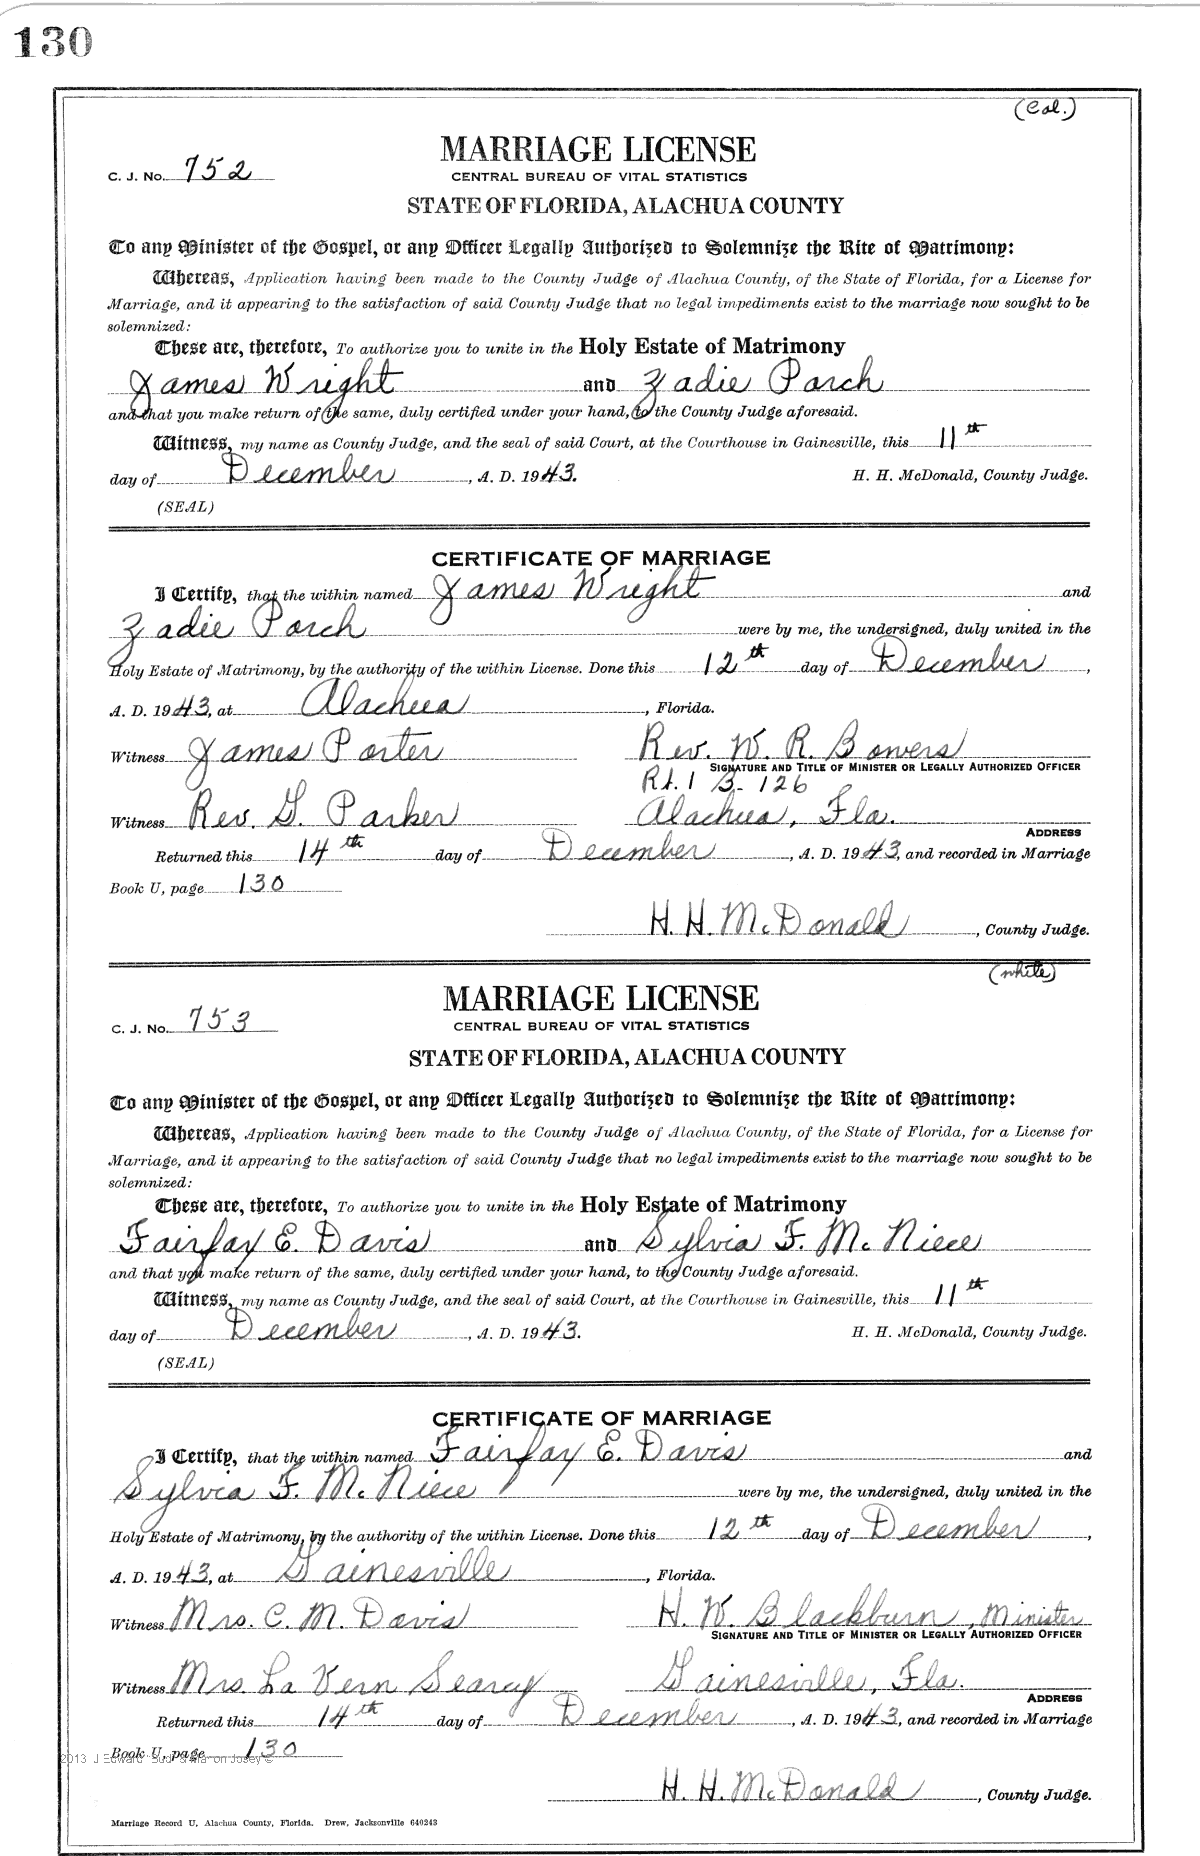 130
(Col.)
MARRIAGE LICENSE
C. J. No. 752
CENTRAL BUREAU OF VITAL STATISTICS
STATE OF FLORIDA, ALACHUA COUNTY
To any Minister of the Gospel, or any Officer Legally Authorized to Solemnize the Rite of Matrimony:
Whereas, Application having been made to the County Judge of Alachua County, of the State of Florida, for a License for
Marriage, and it appearing to the satisfaction of said County Judge that no legal impediments exist to the marriage now sought to be
solemnized:
These are, therefore, To authorize you to unite in the Holy Estate of Matrimony
James Wright and Zadie Porch
and that you make return of the same, duly certified under your hand, to the County Judge aforesaid.
Witness, my name as County Judge, and the seal of said Court, at the Courthouse in Gainesville, this 11th
day of December, A. D. 1943. H. H. McDonald, County Judge.
(SEAL)
CERTIFICATE OF MARRIAGE
I Certify, that the within named James Wright and
Zadie Porch were by me, the undersigned, duly united in the
Holy Estate of Matrimony, by the authority of the within License. Done this 12th day of December,
A. D. 1943, at Alachua, Florida.
Witness James Porter Rev. W. R. Bowers
SIGNATURE AND TITLE OF MINISTER OR LEGALLY AUTHORIZED OFFICER
Rt. 1 B- 126
Witness Rev. G. Parker Alachua, Fla.
ADDRESS
Returned this 14th day of December, A. D. 1943, and recorded in Marriage
Book U, page 130
H. H. McDonald, County Judge.
(white)
MARRIAGE LICENSE
C. J. No. 753
CENTRAL BUREAU OF VITAL STATISTICS
STATE OF FLORIDA, ALACHUA COUNTY
To any Minister of the Gospel, or any Officer Legally Authorized to Solemnize the Rite of Matrimony:
Whereas, Application having been made to the County Judge of Alachua County, of the State of Florida, for a License for
Marriage, and it appearing to the satisfaction of said County Judge that no legal impediments exist to the marriage now sought to be
solemnized:
These are, therefore, To authorize you to unite in the Holy Estate of Matrimony
Fairfax E. Davis and Sylvia F. McNiece
and that you make return of the same, duly certified under your hand, to the County Judge aforesaid.
Witness, my name as County Judge, and the seal of said Court, at the Courthouse in Gainesville, this 11th
day of December, A. D. 1943. H. H. McDonald, County Judge.
(SEAL)
CERTIFICATE OF MARRIAGE
I Certify, that the within named Fairfax E. Davis and
Sylvia F. McNiece were by me, the undersigned, duly united in the
Holy Estate of Matrimony, by the authority of the within License. Done this 12th day of December,
A. D. 1943, at Gainesville, Florida.
Witness Mrs. C. M. Davis H. W. Blackburn, Minister
SIGNATURE AND TITLE OF MINISTER OR LEGALLY AUTHORIZED OFFICER
Witness Mrs. La Vern Searcy Gainesville, Fla.
ADDRESS
Returned this 14th day of December, A. D. 1943, and recorded in Marriage
Book U, page 130
2013 J Edward Josey ©
H. H. McDonald, County Judge.
Marriage Record U, Alachua County, Florida. Drew, Jacksonville 640243